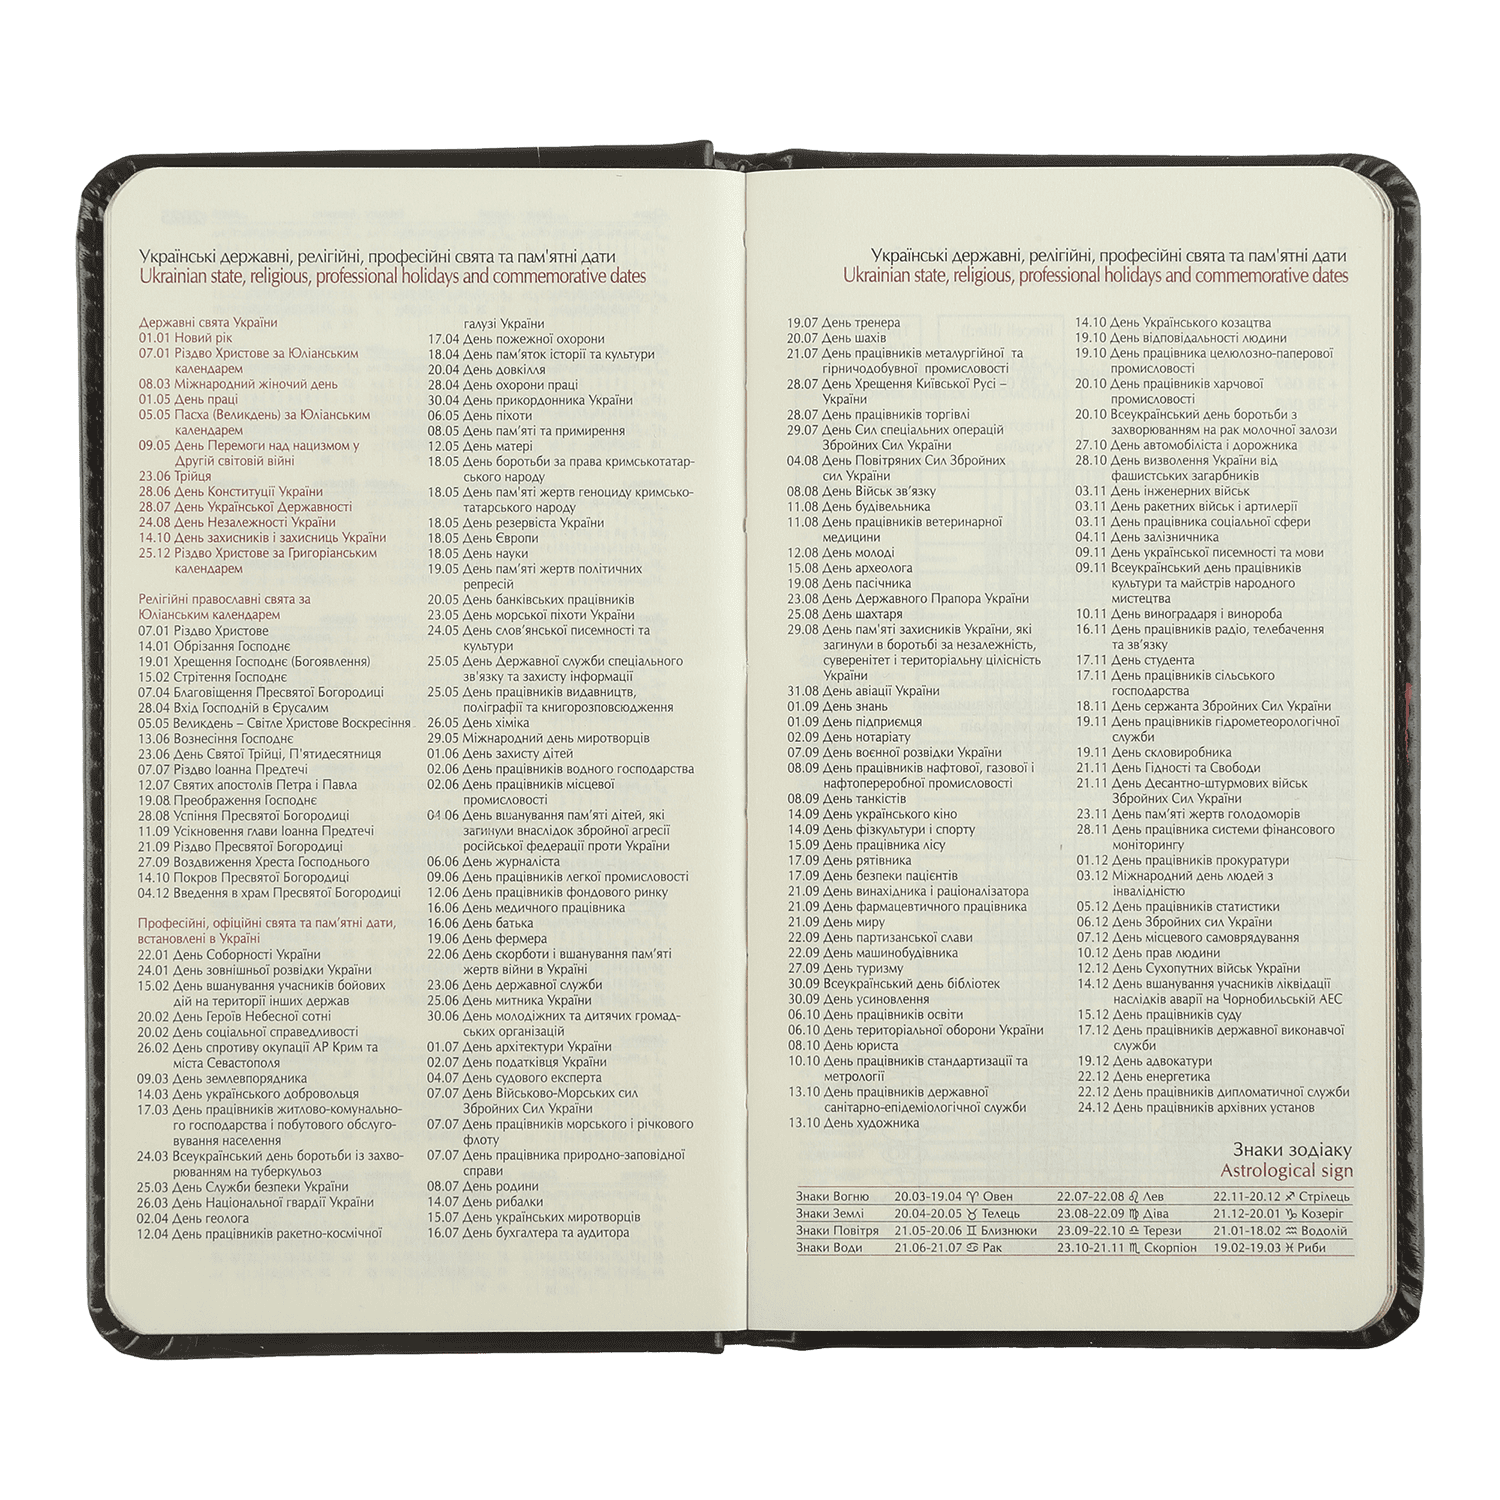 Українські державні, релігійні, професійні свята та пам'ятні дати
Ukrainian state, religious, professional holidays and commemorative dates
Державні свята України
01.01 Новий рік
07.01 Різдво Христове за Юліанським
календарем
08.03 Міжнародний жіночий день
01.05 День праці
05.05 Пасха (Великдень) за Юліанським
календарем
09.05 День Перемоги над нацизмом у
Другій світовій війні
23.06 Трійця
28.06 День Конституції України
28.07 День Української Державності
24.08 День Незалежності України
14.10 День захисників і захисниць України
25.12 Різдво Христове за Григоріанським
календарем
Релігійні православні свята за
Юліанським календарем
07.01 Різдво Христове
14.01 Обрізання Господнє
19.01 Хрещення Господнє (Богоявлення)
15.02 Стрітення Господнє
07.04 Благовіщення Пресвятої Богородиці
28.04 Вхід Господній в Єрусалим
05.05 Великдень – Світле Христове Воскресіння
13.06 Вознесіння Господнє
23.06 День Святої Трійці, П'ятидесятниця
07.07 Різдво Іоанна Предтечі
12.07 Святих апостолів Петра і Павла
19.08 Преображення Господнє
28.08 Успіння Пресвятої Богородиці
11.09 Усікновення глави Іоанна Предтечі
21.09 Різдво Пресвятої Богородиці
27.09 Воздвиження Хреста Господнього
14.10 Покров Пресвятої Богородиці
04.12 Введення в храм Пресвятої Богородиці
Професійні, офіційні свята та пам'ятні дати,
встановлені в Україні
22.01 День Соборності України
24.01 День зовнішньої розвідки України
15.02 День вшанування учасників бойових
дій на території інших держав
20.02 День Героїв Небесної сотні
20.02 День соціальної справедливості
26.02 День спротиву окупації АР Крим та
міста Севастополя
09.03 День землевпорядника
14.03 День українського добровольця
17.03 День працівників житлово-комунально-
го господарства і побутового обслуго-
вування населення
24.03 Всеукраїнський день боротьби із захво-
рюванням на туберкульоз
25.03 День Служби безпеки України
26.03 День Національної гвардії України
02.04 День геолога
12.04 День працівників ракетно-космічної
галузі України
17.04 День пожежної охорони
18.04 День пам'яток історії та культури
20.04 День довкілля
28.04 День охорони праці
30.04 День прикордонника України
06.05 День піхоти
08.05 День пам'яті та примирення
12.05 День матері
18.05 День боротьби за права кримськотатар-
ського народу
18.05 День пам'яті жертв геноциду кримсько-
татарського народу
18.05 День резервіста України
18.05 День Європи
18.05 День науки
19.05 День пам'яті жертв політичних
репресій
20.05 День банківських працівників
23.05 День морської піхоти України
24.05 День слов'янської писемності та
культури
25.05 День Державної служби спеціального
зв'язку та захисту інформації
25.05 День працівників видавництв,
поліграфії та книгорозповсюдження
26.05 День хіміка
29.05 Міжнародний день миротворців
01.06 День захисту дітей
02.06 День працівників водного господарства
02.06 День працівників місцевої
промисловості
04.06 День вшанування пам'яті дітей, які
загинули внаслідок збройної агресії
російської федерації проти України
06.06 День журналіста
09.06 День працівників легкої промисловості
12.06 День працівників фондового ринку
16.06 День медичного працівника
16.06 День батька
19.06 День фермера
22.06 День скорботи і вшанування пам'яті
жертв війни в Україні
23.06 День державної служби
25.06 День митника України
30.06 День молодіжних та дитячих громад-
ських організацій
01.07 День архітектури України
02.07 День податківця України
04.07 День судового експерта
07.07 День Військово-Морських сил
Збройних Сил України
07.07 День працівників морського і річкового
флоту
07.07 День працівника природно-заповідної
справи
08.07 День родини
14.07 День рибалки
15.07 День українських миротворців
16.07 День бухгалтера та аудитора
Українські державні, релігійні, професійні свята та пам'ятні дати
Ukrainian state, religious, professional holidays and commemorative dates
19.07 День тренера
20.07 День шахів
21.07 День працівників металургійної та
гірничодобувної промисловості
28.07 День Хрещення Київської Русі –
України
28.07 День працівників торгівлі
29.07 День Сил спеціальних операцій
Збройних Сил України
04.08 День Повітряних Сил Збройних
сил України
08.08 День Військ зв'язку
11.08 День будівельника
11.08 День працівників ветеринарної
медицини
12.08 День молоді
15.08 День археолога
19.08 День пасічника
23.08 День Державного Прапора України
25.08 День шахтаря
29.08 День пам'яті захисників України, які
загинули в боротьбі за незалежність,
суверенітет і територіальну цілісність
України
31.08 День авіації України
01.09 День знань
01.09 День підприємця
02.09 День нотаріату
07.09 День воєнної розвідки України
08.09 День працівників нафтової, газової і
нафтопереробної промисловості
08.09 День танкістів
14.09 День українського кіно
14.09 День фізкультури і спорту
15.09 День працівника лісу
17.09 День рятівника
17.09 День безпеки пацієнтів
21.09 День винахідника і раціоналізатора
21.09 День фармацевтичного працівника
21.09 День миру
22.09 День партизанської слави
22.09 День машинобудівника
27.09 День туризму
30.09 Всеукраїнський день бібліотек
30.09 День усиновлення
06.10 День працівників освіти
06.10 День територіальної оборони України
08.10 День юриста
10.10 День працівників стандартизації та
метрології
13.10 День працівників державної
санітарно-епідеміологічної служби
13.10 День художника
14.10 День Українського козацтва
19.10 День відповідальності людини
19.10 День працівника целюлозно-паперової
промисловості
20.10 День працівників харчової
промисловості
20.10 Всеукраїнський день боротьби з
захворюванням на рак молочної залози
27.10 День автомобіліста і дорожника
28.10 День визволення України від
фашистських загарбників
03.11 День інженерних військ
03.11 День ракетних військ і артилерії
03.11 День працівника соціальної сфери
04.11 День залізничника
09.11 День української писемності та мови
09.11 Всеукраїнський день працівників
культури та майстрів народного
мистецтва
10.11 День виноградаря і винороба
16.11 День працівників радіо, телебачення
та зв'язку
17.11 День студента
17.11 День працівників сільського
господарства
18.11 День сержанта Збройних Сил України
19.11 День працівників гідрометеорологічної
служби
19.11 День скловиробника
21.11 День Гідності та Свободи
21.11 День Десантно-штурмових військ
Збройних Сил України
23.11 День пам'яті жертв голодоморів
28.11 День працівника системи фінансового
моніторингу
01.12 День працівників прокуратури
03.12 Міжнародний день людей з
інвалідністю
05.12 День працівників статистики
06.12 День Збройних сил України
07.12 День місцевого самоврядування
10.12 День прав людини
12.12 День Сухопутних військ України
14.12 День вшанування учасників ліквідації
наслідків аварії на Чорнобильській АЕС
15.12 День працівників суду
17.12 День працівників державної виконавчої
служби
19.12 День адвокатури
22.12 День енергетика
22.12 День працівників дипломатичної служби
24.12 День працівників архівних установ
Знаки зодіаку
Astrological sign
Знаки Вогню 20.03-19.04 ♈ Овен 22.07-22.08 ♌ Лев 22.11-20.12 ♐ Стрілець
Знаки Землі 20.04-20.05 ♉ Телець 23.08-22.09 ♍ Діва 21.12-20.01 ♑ Козеріг
Знаки Повітря 21.05-20.06 ♊ Близнюки 23.09-22.10 ♎ Терези 21.01-18.02 ♒ Водолій
Знаки Води 21.06-21.07 ♋ Рак 23.10-21.11 ♏ Скорпіон 19.02-19.03 ♓ Риби